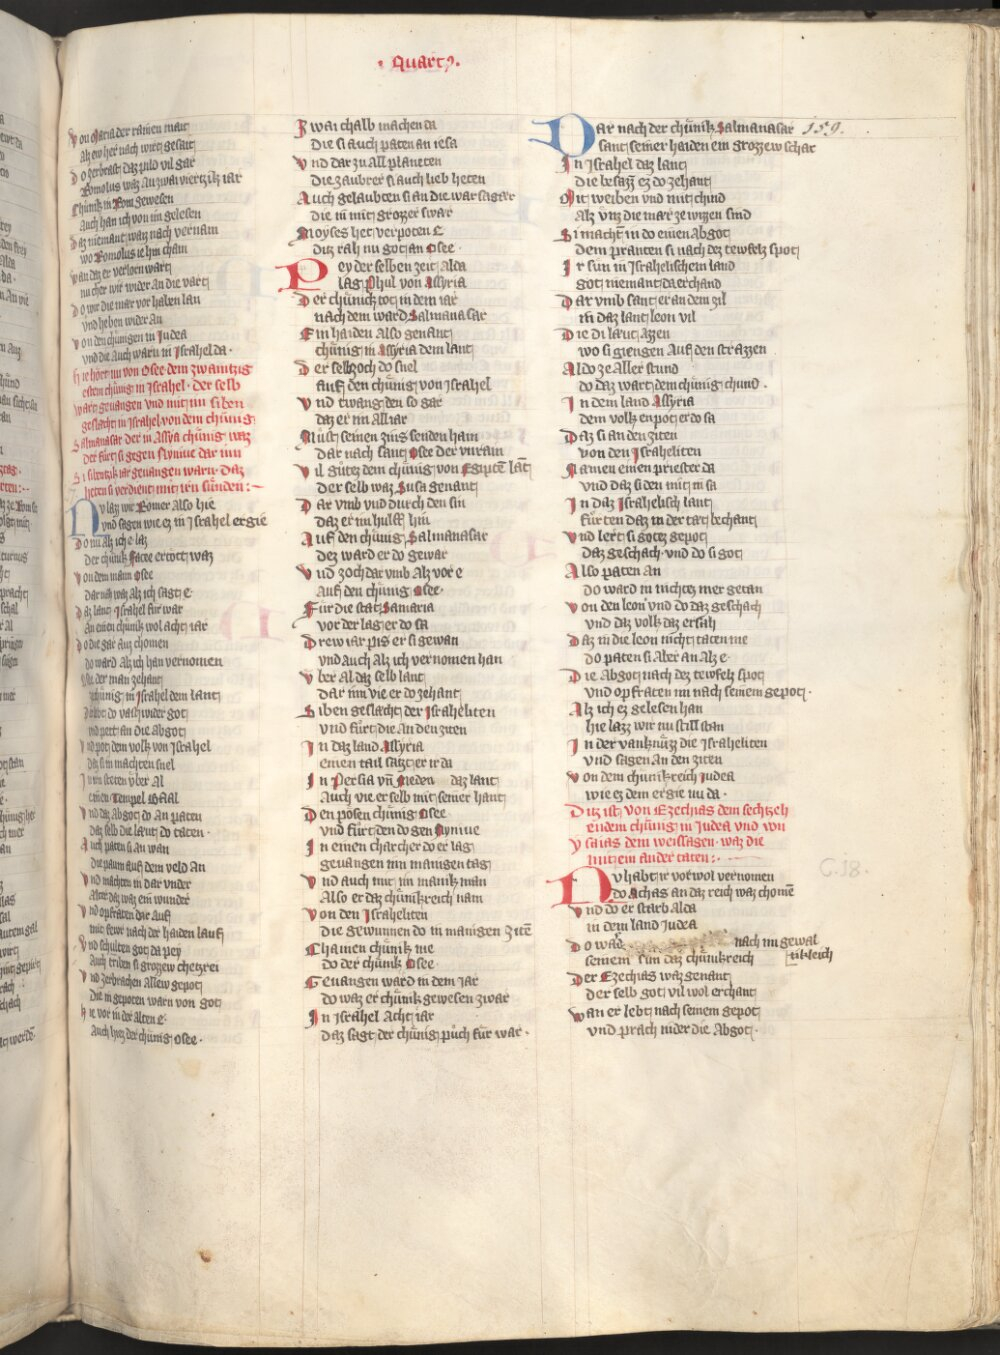 · Quart9 ·
159.
Von Maria der rainen mait
Alz ew her nach wirt gesait
Do zerbrast daz pild vil gar
Romolus waz Au zwai viertzik iar
Chünik in Rom gewesen
Auch han ich von im gelesen
Daz niemant waz nach vernam
wo Romolus ie hin cham
wan daz er verlorn wart
nu cher wir wider An die vart
Do wir die mar vor haben lan
Vnd heben wider An
Von den chünigen in Judea
vnd die Auch warn in Israhel da ·
Hie hört nu von Osee dem zwaintzig
estem chünig in Israhel · der selb
wart geuangen vnd mit im siben
geslacht in Israhel von dem chünig
Salmanasar der in Assya chünig waz
der fürt si gegen Nyniue dar inn
Si sibentzik iar geuangen warn · daz
heten si verdient mit irn sünden :~
Nv laz wir Romer Also hie
vnd sagen wie ez in Israhel ergie
Do nu Alz ich e laz
Der chünik Facee ertott waz
Von dem mann Osee
Dar nah waz Alz ich sagt e ·
Daz lant Israhel für war
An einen chünik wol acht iar
Do die gar auz chomen
do ward Alz ich han vernomen
Osee der man zehant
chünig in Israhel dem lant
do vach wider got
vnd pett an die Abgot
Vnd pot dem volk von Israhel
daz si im machten snel
In irn steten vber Al
einen Tempel Baal
Vnd daz Abgot do An paten
daz selb die läut do taten ·
Auch paten si An wan
die paum auf dem veld An
Vnd machten in dar vnder
Alter daz waz ein wunder
Vnd opfraten dar Auf
mit fewr nach der haiden lauf
Vnd schulten got da pey
Auch triben si grozzew chetzrei
Vnd zerbrachen Allew gepot
Die in gepoten warn von got
Hie vor in der Alten e ·
Auch hiez der chünig Osee ·
Zwai chalb machen da
Die si auch paten an iesa
Vnd dar zu all planeten
Die zaubrer si auch lieb heten
Auch gelaubten si an die warsagar
die in mit grozer swar
Moyses het verpoten E
Ditz rah nu got an Osee ·
Pey der selben zeit Alda
lag Phul von Assyria
Der chünich tot in dem iar
nach dem ward Salmanasar
Ein haiden Also genant
chünig in Assyria dem lant
Der selb zoch do snel
auf den chünig von Israhel
Vnd twang den so gar
daz er im all iar
Must seinen zins senden haim
Dar nach sant Osee der vnrain
Vil gütez dem chünig von Egipten lant
Der selb waz Susa genant
Dar vmb vnd durch den sin
daz er im hulff hin
Auf den chünig Salmanasar
dez ward er do gewar
Vnd zoch dar vmb Alz vor e
Auf den chünig Osee ·
Für die stat Samaria
vor der lag er do sa
Drew iar piz er si gewan
vnd auch Alz ich vernomen han
Vber Al daz selb lant
Dar inn vie er do zehant
Siben geslacht der Israheliten
Vnd fürt die An den ziten
In daz land Assyria
einen tail satzt er ir da
In Persia vnd Meden daz lant
Auch vie er selb mit seiner hant
Den pösen chünig Osee
vnd fürt den do gen Nyniue
In einen charcher do er lag
geuangen inn manigen tag
Vnd auch mit im manik man
Also er daz chünikreich nam
Von den Israheliten
die gewunnen do in manigen ziten
Chainen chünik me
do der chünik Osee ·
Geuangen ward in dem iar
do waz er chünik gewesen zwar
In Israhel Acht iar
daz sagt der chünig püch für war ·
Dar nach der chünik Salmanasar
sant seiner haiden ein grozzew schar
In Israhel daz lant
die besazz ez do zehant
Mit weiben vnd mit chind
Alz vnz die mar ze wizen sind
Si macht in do einen Abgot
Dem pranten si nach dez tewfelz spot
Ir sun in Israhelischem land
got niemant da erchand
Dar vmb sant er an dem zil
in daz lant leon vil
Die di läut Azzen
wo si giengen Auf den strazzen
Aldo ze Aller stund
do daz wart dem chünig chund ·
In dem land Assyria
dem volk enpot er do sa
Daz si an den ziten
von den Israheliten
Namen einen priester da
vnd daz si den mit in sa
In daz Israhelisch lant
fürten daz in der tat bechant
Vnd lert si gotez gepot
daz geschach · vnd do si got
Also paten An
do ward in nichtez mer getan
Von den leon vnd do daz geschach
vnd daz volk daz ersah
Daz in die leon nicht taten me
do paten si Aber an Alz e ·
Die Abgot nach dez tewfelz spot
vnd opfraten im nach seinem gepot ·
Alz ich ez gelesen han
hie lazz wir nu still stan
In der vanknüzz die Israheliten
vnd sagen An den ziten
Von dem chünikreich Judea
wie ez dem ergie nu da ·
Ditz ist von Ezechias dem sechtzeh
endem chünig in Judea vnd von
Ysaias dem weissagen · waz die
mit ein ander taten : ·
C. 18.
Nv habt ir vor wol vernomen
do Achas an daz reich waz chomen
Vnd do er starb Alda
in dem land Judea
Do ward nach im gewal
tikleich
seinem sun daz chünikreich
Der Ezechias waz genant
der selb got vil wol erchant
Wan er lebt nach seinem gepot
vnd prach nider die Abgot ·